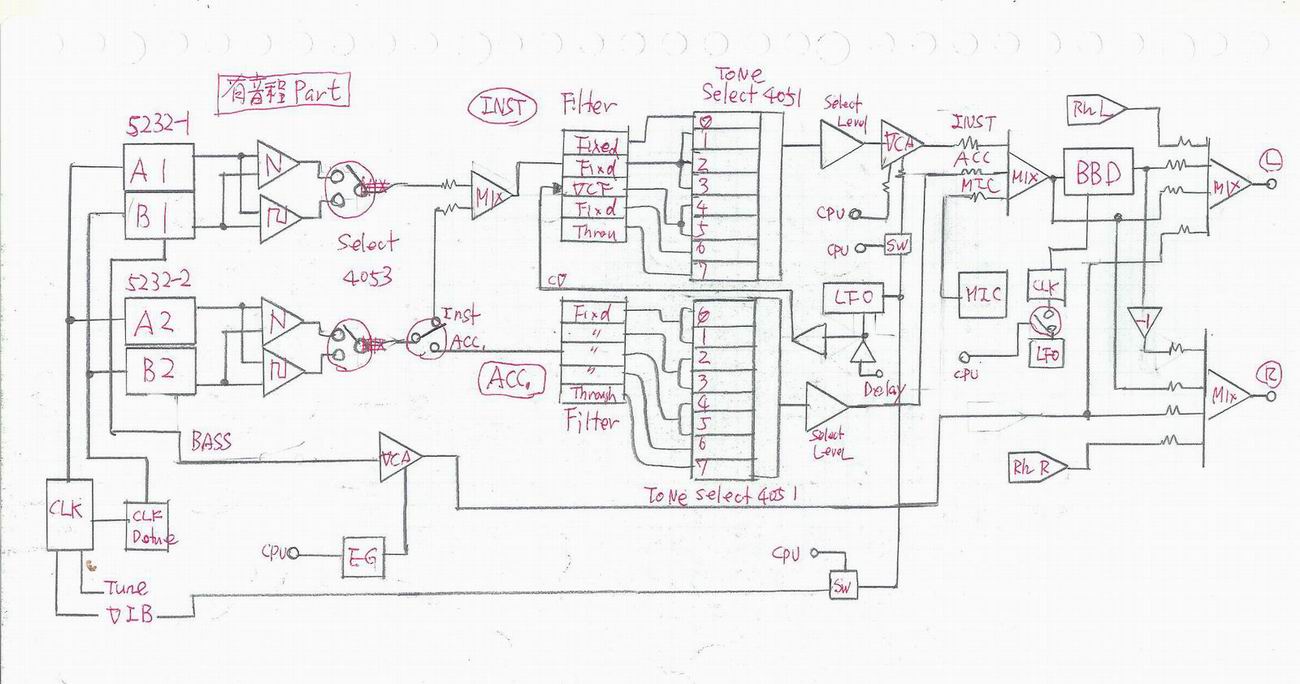 有音程 Part
INST
Filter
Tone
Select 4051
Select
Level
VCA
INST
ACC
MIC
MIX
RhL
BBD
L
MIX
5232-1
A1
B1
N
Select
4053
MIX
Fixed
Fixd
VCF
Fixd
Throu
0
1
2
3
4
5
6
7
CPU
CPU
SW
CV
5232-2
A2
B2
N
Inst
ACC.
ACC.
Fixd
"
"
"
Through
Filter
0
1
2
3
4
5
6
7
Tone Select 4051
LFO
Delay
Select
Level
MIC
CLK
LFO
CPU
-1
R
MIX
RhR
BASS
VCA
CLK
CLK
Detune
CPU
E-G
CPU
SW
Tune
VIB